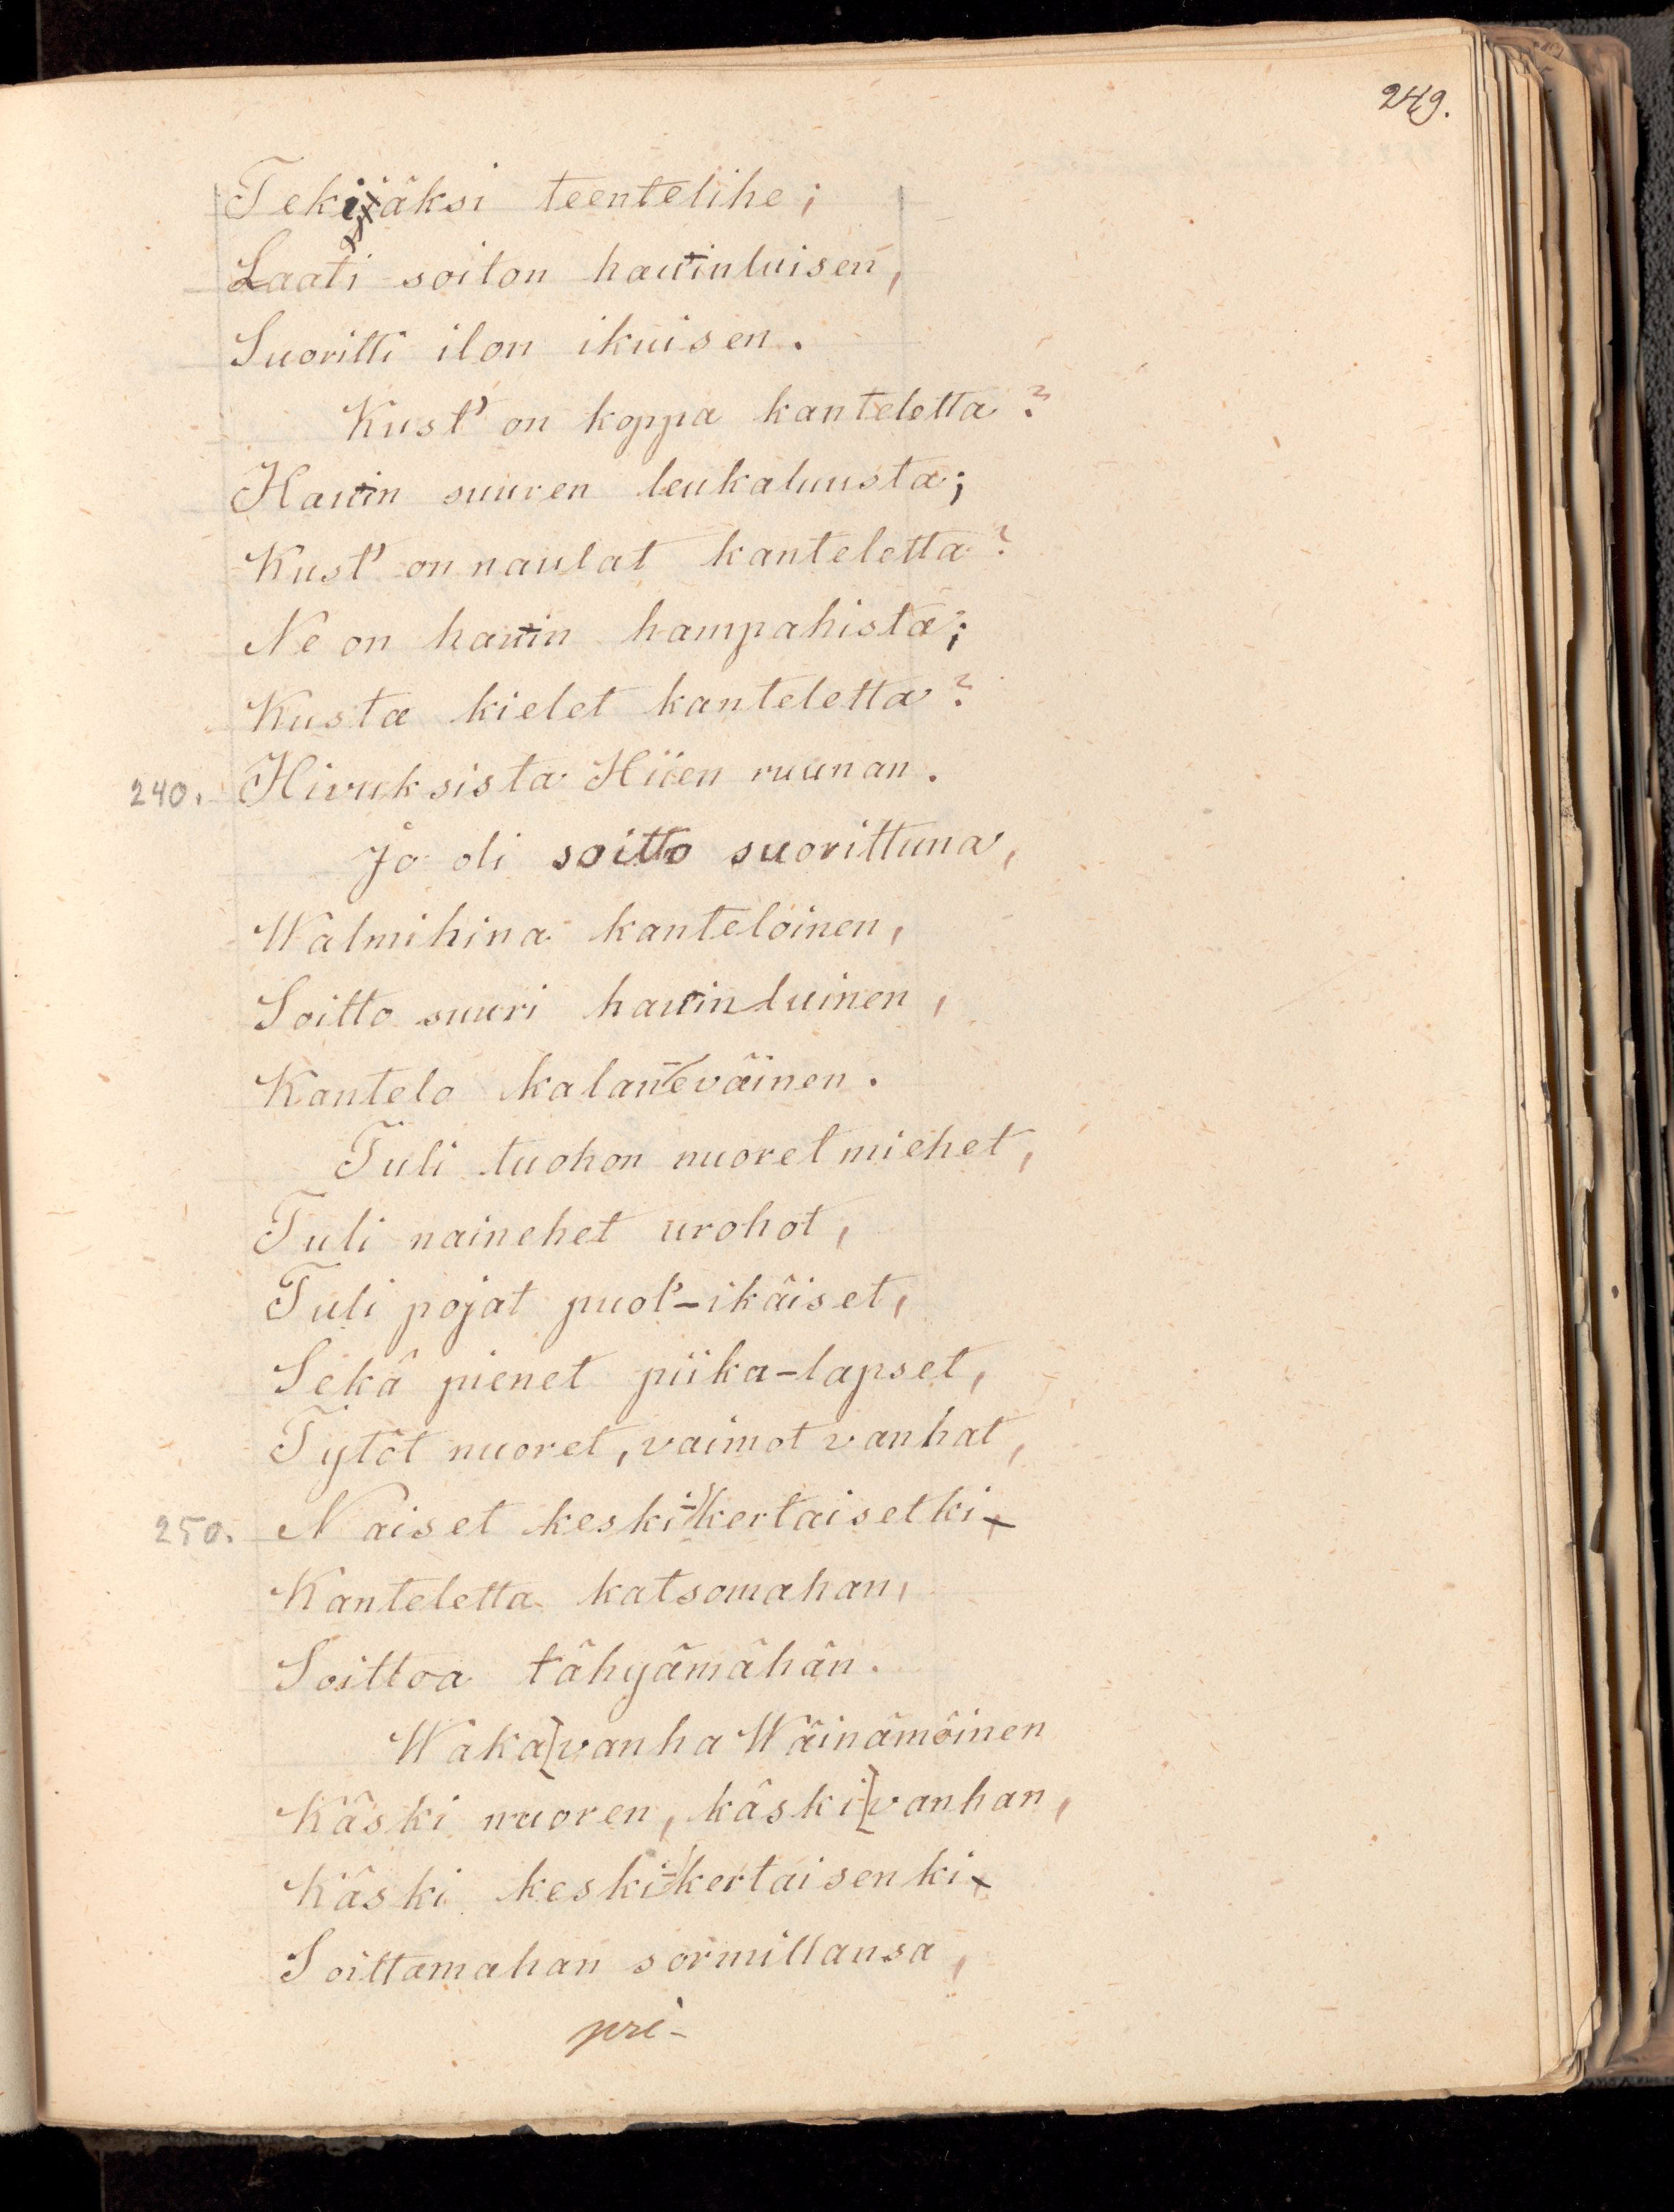 249.
Tekiäksi teentelihe;
Laati soiton hauinluisen,
Suoritti ilon ikuisen.
Kust' on koppa kanteletta?
Hauin suuren leukaluusta;
Kust' on naulat kanteletta?
Ne on hauin hampahista;
Kusta kielet kanteletta?
240. Hivuksista Hiien ruunan.
Jo oli soitto suorittuna,
Walmihina kanteloinen,
Soitto suuri hauinluinen,
Kantelo kalaneväinen.
Tuli tuohon nuoret miehet,
Tuli nainehet urohot,
Tuli pojat puol'-ikäiset,
Sekä pienet piika-lapset,
Tytöt nuoret, vaimot vanhat,
250. Naiset keski-kertaisetki,
Kanteletta katsomahan,
Soittoa tähyämähän.
Waka[vanha Wäinämöinen
Käski nuoren, käski[vanhan,
Käski keski-kertaisenki
Soittamahan sormillansa,